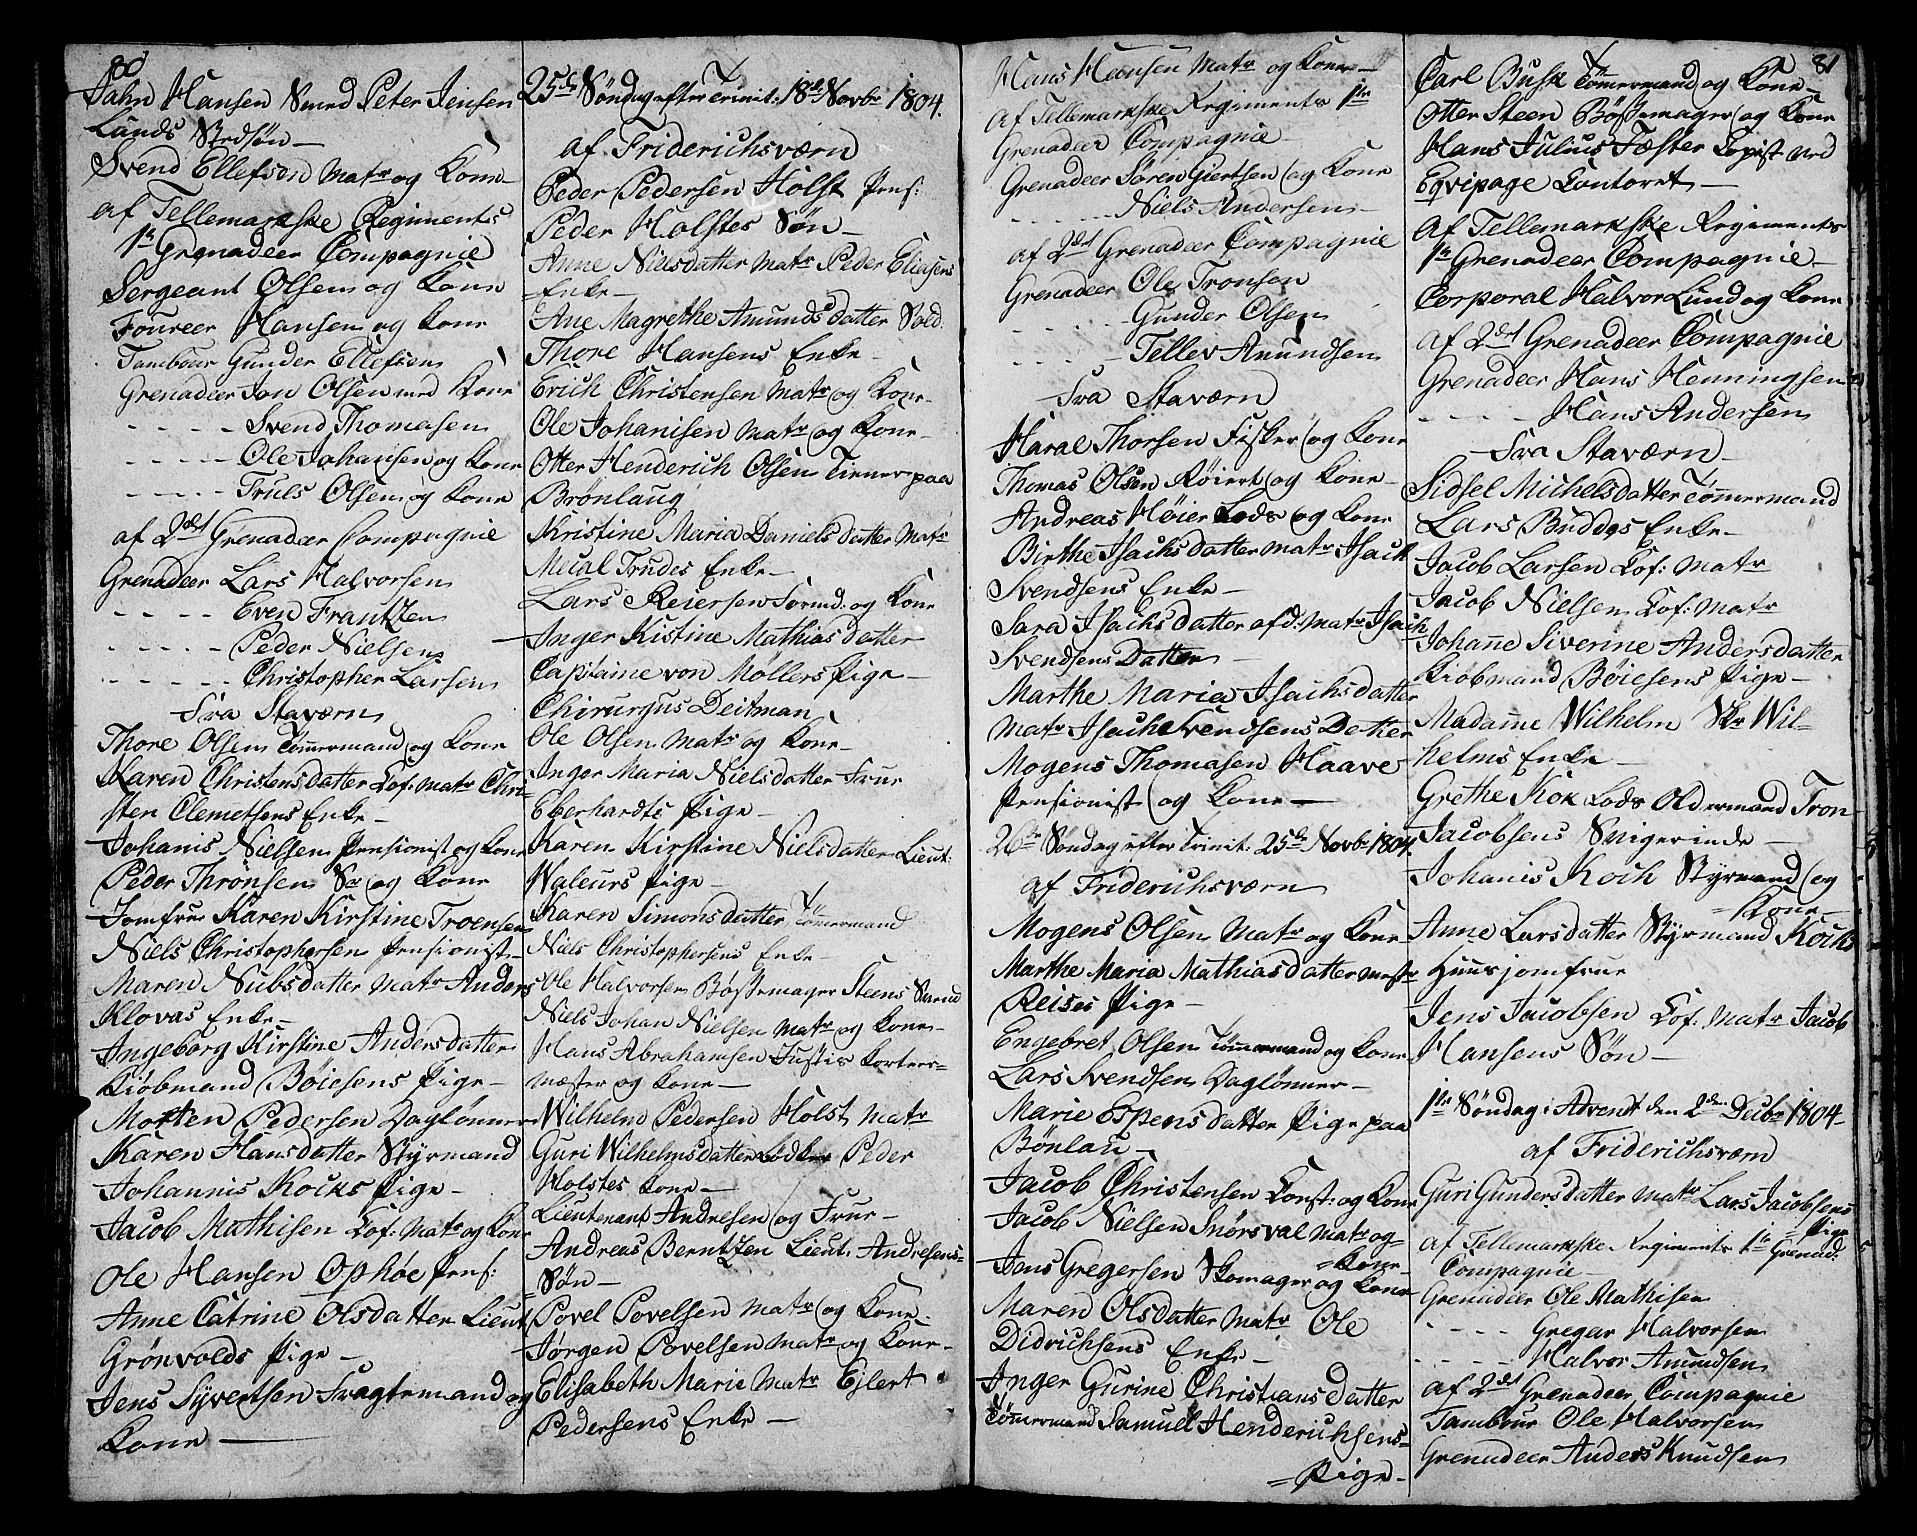 80
Jahn Hansen Smed Peter Jensen
Lunds Stedsøn —
Svend Ellefsen Matr og Kone
af Tellemarkske Regiments
1te Grenadeer Compagnie
Sergeant Olsen og Kone
Foureer Hansen og Kone
Tambour Gunder Ellefsen
Grenadeer Jon Olsen med Kone
- - - - - Svend Thomasen
- - - - - Ole Johansen og Kone
- - - - - Truls Olsen og Kone
af 2det Grenadeer Compagnie
Grenadeer Lars Halvorsen
- - - - - Even Frantzen
- - - - - Peder Nielsen
- - - - - Christopher Larsen
Fra Staværn
Thore Olsen Tømmermand og Kone
Karen Christensdatter Cof: Matr Chri-
sten Clemetsens Enke —
Johanis Nielsen Pensionist og Kone
Peder Thrønsen Sr og Kone
Jomfrue Karen Kirstine Troensen
Niels Christophersen Pensionist —
Maren Nubsdatter Matr Anders
Klovas Enke —
Ingeborg Kirstine Andersdatter
Kiøbmand Bøiesens Pige —
Morten Pedersen Daglønner
Karen Hansdatter Styrmand
Johannis Kocks Pige —
Jacob Mathisen Cof: Matr og Kone
Ole Hansen Ophøe Pens:
Anne Catrine Olsdatter Lieut
Grønvolds Pige —
Jens Syvertsen Fragtemand og
Kone —
25de Søndag efter Trinit: 18de Novbr 1804.
af Friderichsværn
Peder Pedersen Holst Pens:
Peder Holstes Søn —
Anne Nielsdatter Matr Peder Eliasens
Enke —
Ane Magrethe Amundsdatter Sold.
Thore Hansens Enke —
Erich Christensen Matr og Kone —
Ole Johanisen Matr og Kone —
Otter Henderich Olsen Tiener paa
Brønlaug
Kristine Maria Danielsdatter Matr
Mical Trudes Enke —
Lars Reiersen Formd: og Kone
Inger Kistine Mathiasdatter
Capitaine von Møllers Pige —
Chirurgus Deitman
Ole Olsen Matr og Kone —
Inger Maria Nielsdatter Frue
Eberhardts Pige —
Karen Kirstine Nielsdatter Lieut:
Waleurs Pige —
Karen Simonsdatter Tømmermand
Niels Christophersens Enke —
Ole Halvorsen Bøssemager Steens Svend
Niels Johan Nielsen Matr og Kone —
Hans Abrahamsen Justis Korters-
mester og Kone —
Wilhelm Pedersen Holst Matr
Guri Wilhelmsdatter Peder
Holstes Kone —
Lieutenant Andresen og Frue —
Andreas Berntzen Lieut: Andresens
Søn —
Povel Povelsen Matr og Kone —
Jørgen Povelsen Matr og Kone —
Elisabeth Marie Matr Ejlert
Pedersens Enke —
Hans Hansen Matr og Kone —
af Tellemarkske Regiments 1te
Grenadeer Compagnie
Grenadeer Søren Giertsen og Kone
- - - - - Niels Andersen —
af 2det Grenadeer Compagnie
Grenadeer Ole Tronsen
- - - - - Gunder Olsen
- - - - - Tellev Anundsen
Fra Staværn
Haral Thorsen Fisker og Kone
Thomas Olsen Røiert og Kone —
Andreas Høier Lods og Kone
Birthe Isachsdatter Matr Isach
Svendsens Enke —
Sara Isachsdatter afd: Matr Isach
Svendsens Datter —
Marthe Maria Isachsdatter
Matr Isach Svendsens Datter
Mogens Thomasen Haave
Pensionist og Kone —
26de Søndag efter Trinit: 25de Novbr 1804.
af Friderichsværn
Mogens Olsen Matr og Kone —
Marthe Maria Mathiasdatter Mestr
Reises Pige —
Engebret Olsen Tømmermand og Kone
Lars Svendsen Daglønner —
Marie Espensdatter Pige paa
Bønlau —
Jacob Christensen Const: og Kone
Jacob Nielsen Snørsval Matr og
= Kone —
Jens Gregersen Skomager og Kone
Maren Olsdatter Matr Ole
Didrichsens Enke —
Inger Gurine Christiansdatter
Tømmermand Samuel Henderichsens
= Pige —
81
Carl Busk Tømmermand og Kone —
Otter Steen Bøssemager og Kone
Hans Julius Fæster Copist ved
Eqvipage Contoret —
af Tellemarkske Regiments
1te Grenadeer Compagnie —
Corporal Halvor Lund og Kone
af 2det Grenadeer Compagnie
Grenadeer Hans Henningsen
- - - - - Hans Andersen
Fra Staværn —
Sidsel Michelsdatter Tømmermand
Lars Buddes Enke —
Jacob Larsen Cof: Matr
Jacob Nielsen Cof: Matr
Johanne Siverine Andersdatter
Kiøbmand Bøiesens Pige —
Madamme Wilhelm Skr Wil-
helms Enke —
Grethe Kok Lods Oldermand Tron
Jacobsens Svigerinde —
Johanis Koch Styrmand og
= Kone —
Anne Larsdatter Styrmand Kocks
Huusjomfrue
Jens Jacobsen Cof: Matr Jacob
Hansens Søn —
1te Søndag i Advent den 2den Decbr 1804 —
af Friderichsværn
Guri Gundersdatter Matr Lars Jacobsens
= Pige
af Tellemarkske Regiments 1te Grenad:
Compagnie —
Grenadeer Ole Mathisen
- - - - - Gregar Halvorsen
- - - - - Halvor Amundsen
af 2det Grenadeer Compagnie
Tambour Ole Halvorsen
Grenadeer Anders Knudsen